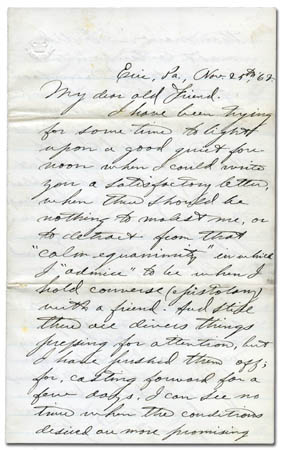 Erie, Pa., Nov. 25th, 62.
My dear old Friend.
I have been trying
for some time to light
upon a good quiet fore-
noon when I could write
you a satisfactory letter,
when there should be
nothing to molest me, or
to detract from that
"calm equanimity" in which
I "admire" to be when I
hold converse (epistolary)
with a friend. And still
there are divers things
pressing for attention, but
I have pushed them off;
for, casting forward for a
few days, I can see no
time when the conditions
desired are more promising